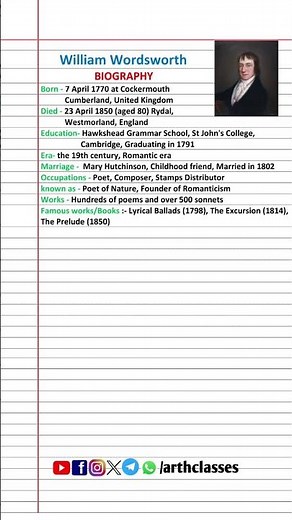 William Wordsworth
BIOGRAPHY
Born - 7 April 1770 at Cockermouth
Cumberland, United Kingdom
Died - 23 April 1850 (aged 80) Rydal,
Westmorland, England
Education- Hawkshead Grammar School, St John's College,
Cambridge, Graduating in 1791
Era- the 19th century, Romantic era
Marriage - Mary Hutchinson, Childhood friend, Married in 1802
Occupations - Poet, Composer, Stamps Distributor
known as - Poet of Nature, Founder of Romanticism
Works - Hundreds of poems and over 500 sonnets
Famous works/Books :- Lyrical Ballads (1798), The Excursion (1814),
The Prelude (1850)
/arthclasses